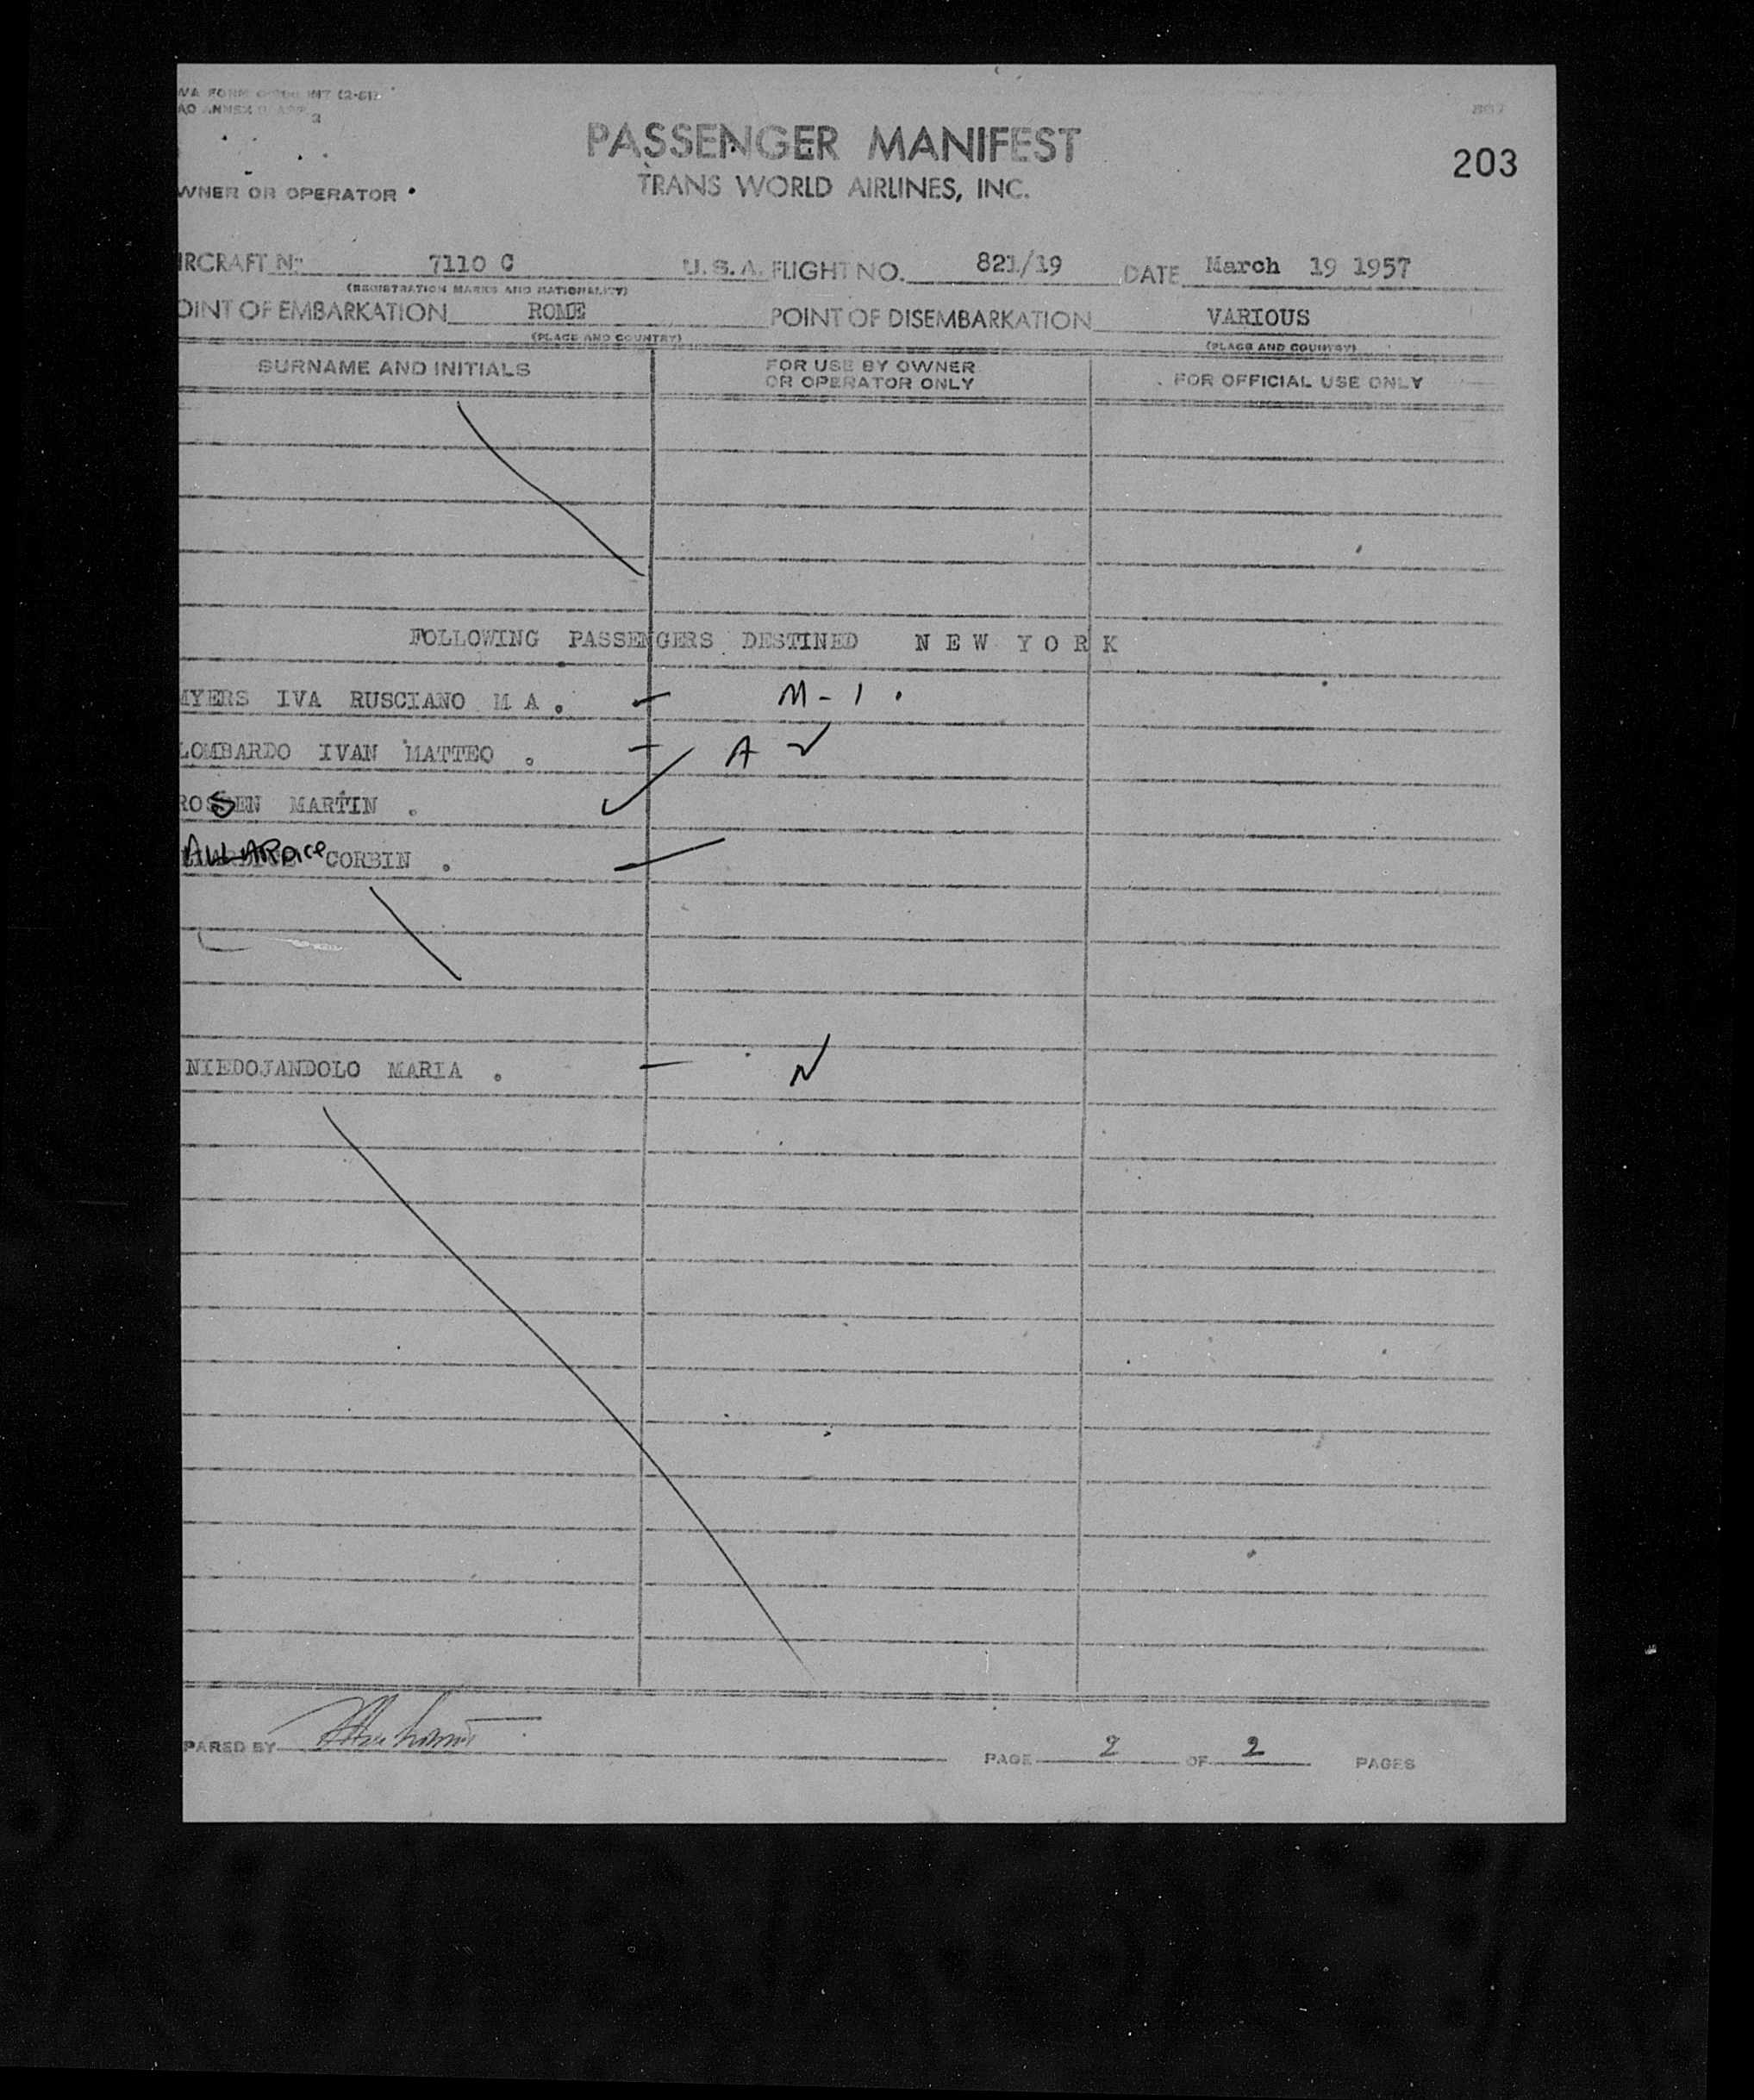 203
PASSENGER MANIFEST
TRANS WORLD AIRLINES, INC.
WNER OR OPERATOR
IRCRAFT No 7110 C U.S.A. FLIGHT NO. 821/19 DATE March 19 1957
(REGISTRATION MARKS AND NATIONALITY)
OINT OF EMBARKATION ROME POINT OF DISEMBARKATION VARIOUS
(PLACE AND COUNTRY) (PLACE AND COUNTRY)
SURNAME AND INITIALS FOR USE BY OWNER OR OPERATOR ONLY FOR OFFICIAL USE ONLY
FOLLOWING PASSENGERS DESTINED N E W Y O R K
MYERS IVA RUSCIANO M A. M-1.
LOMBARDO IVAN MATTEO . A
ROSEN MARTIN .
ALLARDICE CORBIN .
NIEDOJANDOLO MARIA . N
PARED BY PAGE 2 OF 2 PAGES